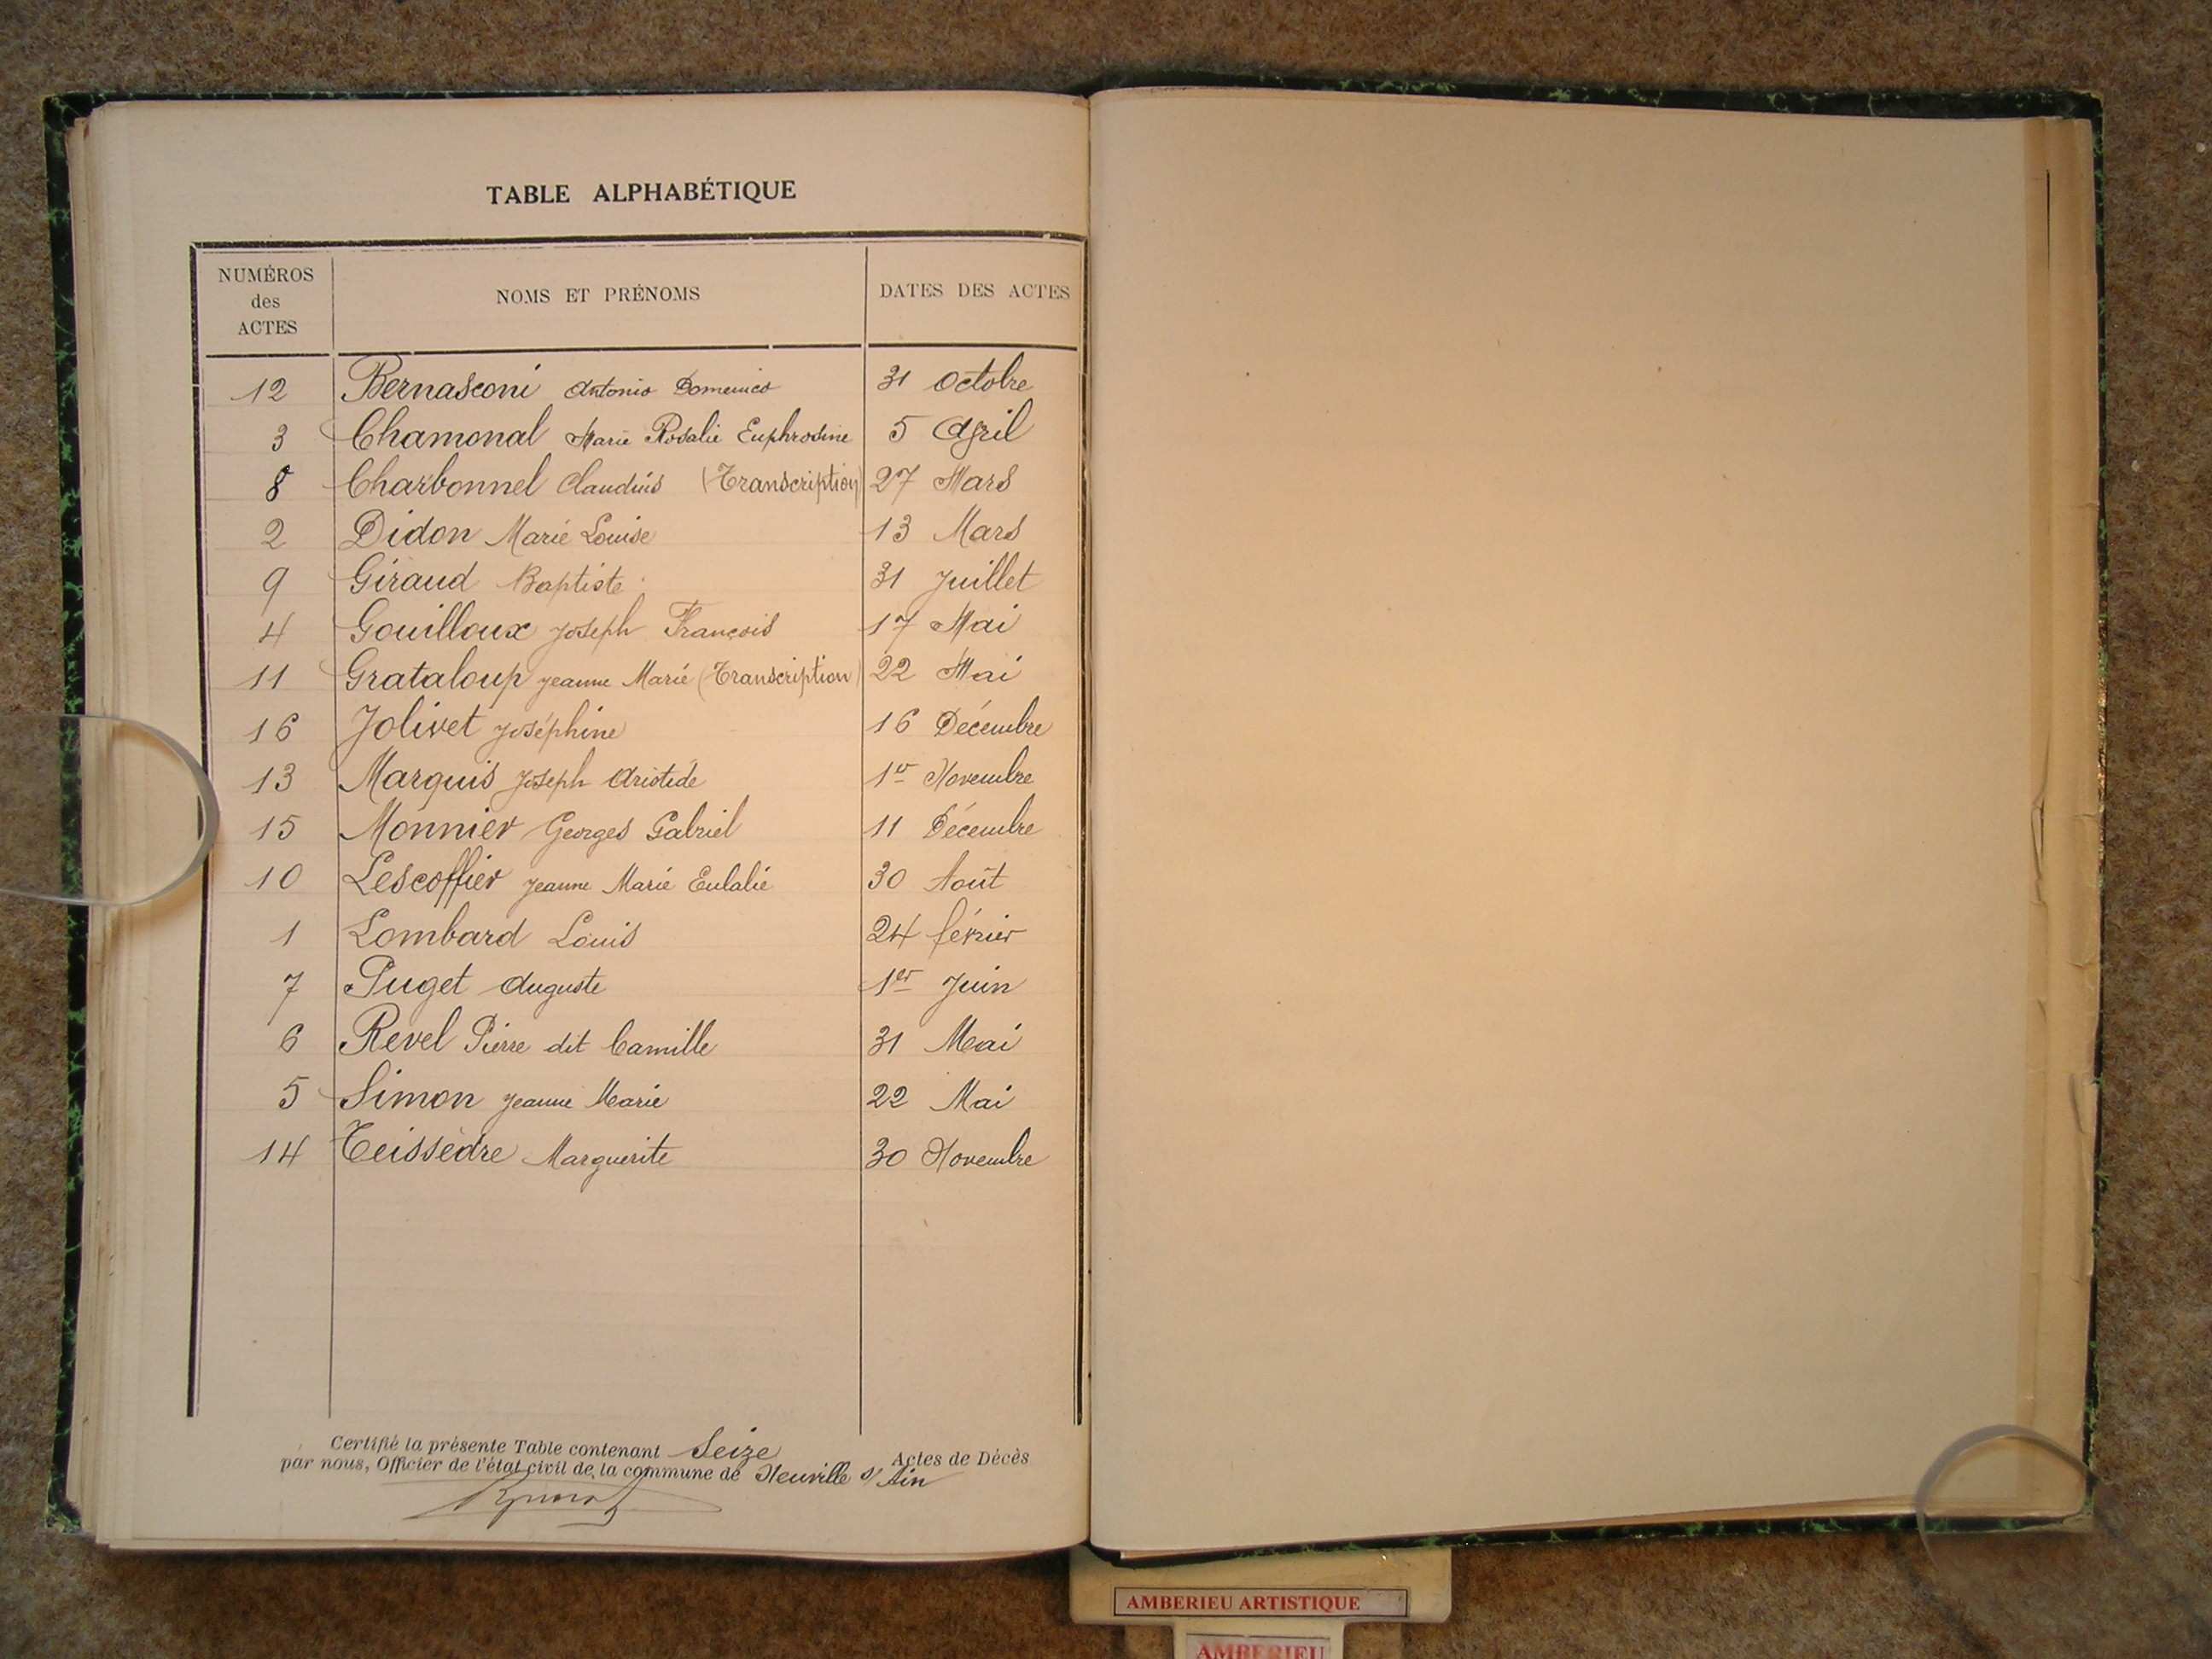 TABLE ALPHABÉTIQUE
NUMÉROS
des
ACTES
NOMS ET PRÉNOMS
DATES DES ACTES
12 Bernasconi Antonio Domenico 31 Octobre
3 Chamonal Marie Rosalie Euphrosine 5 Avril
8 Charbonnel Claudius (Transcription) 27 Mars
2 Didon Marie Louise 13 Mars
9 Giraud Baptiste 31 Juillet
4 Gouilloux Joseph François 17 Mai
11 Grataloup Jeanne Marie (Transcription) 22 Mai
16 Jolivet Joséphine 16 Décembre
13 Marquis Joseph Aristide 1er Novembre
15 Monnier Georges Gabriel 11 Décembre
10 Lescoffier Jeanne Marie Eulalie 30 Août
1 Lombard Louis 24 février
7 Puget Auguste 1er Juin
6 Revel Pierre dit Camille 31 Mai
5 Simon Jeanne Marie 22 Mai
14 Teissèdre Marguerite 30 Novembre
Certifié la présente Table contenant Seize Actes de Décès
par nous, Officier de l'état civil de la commune de Neuville s/ Ain
AMBERIEU ARTISTIQUE
AMBERIEU